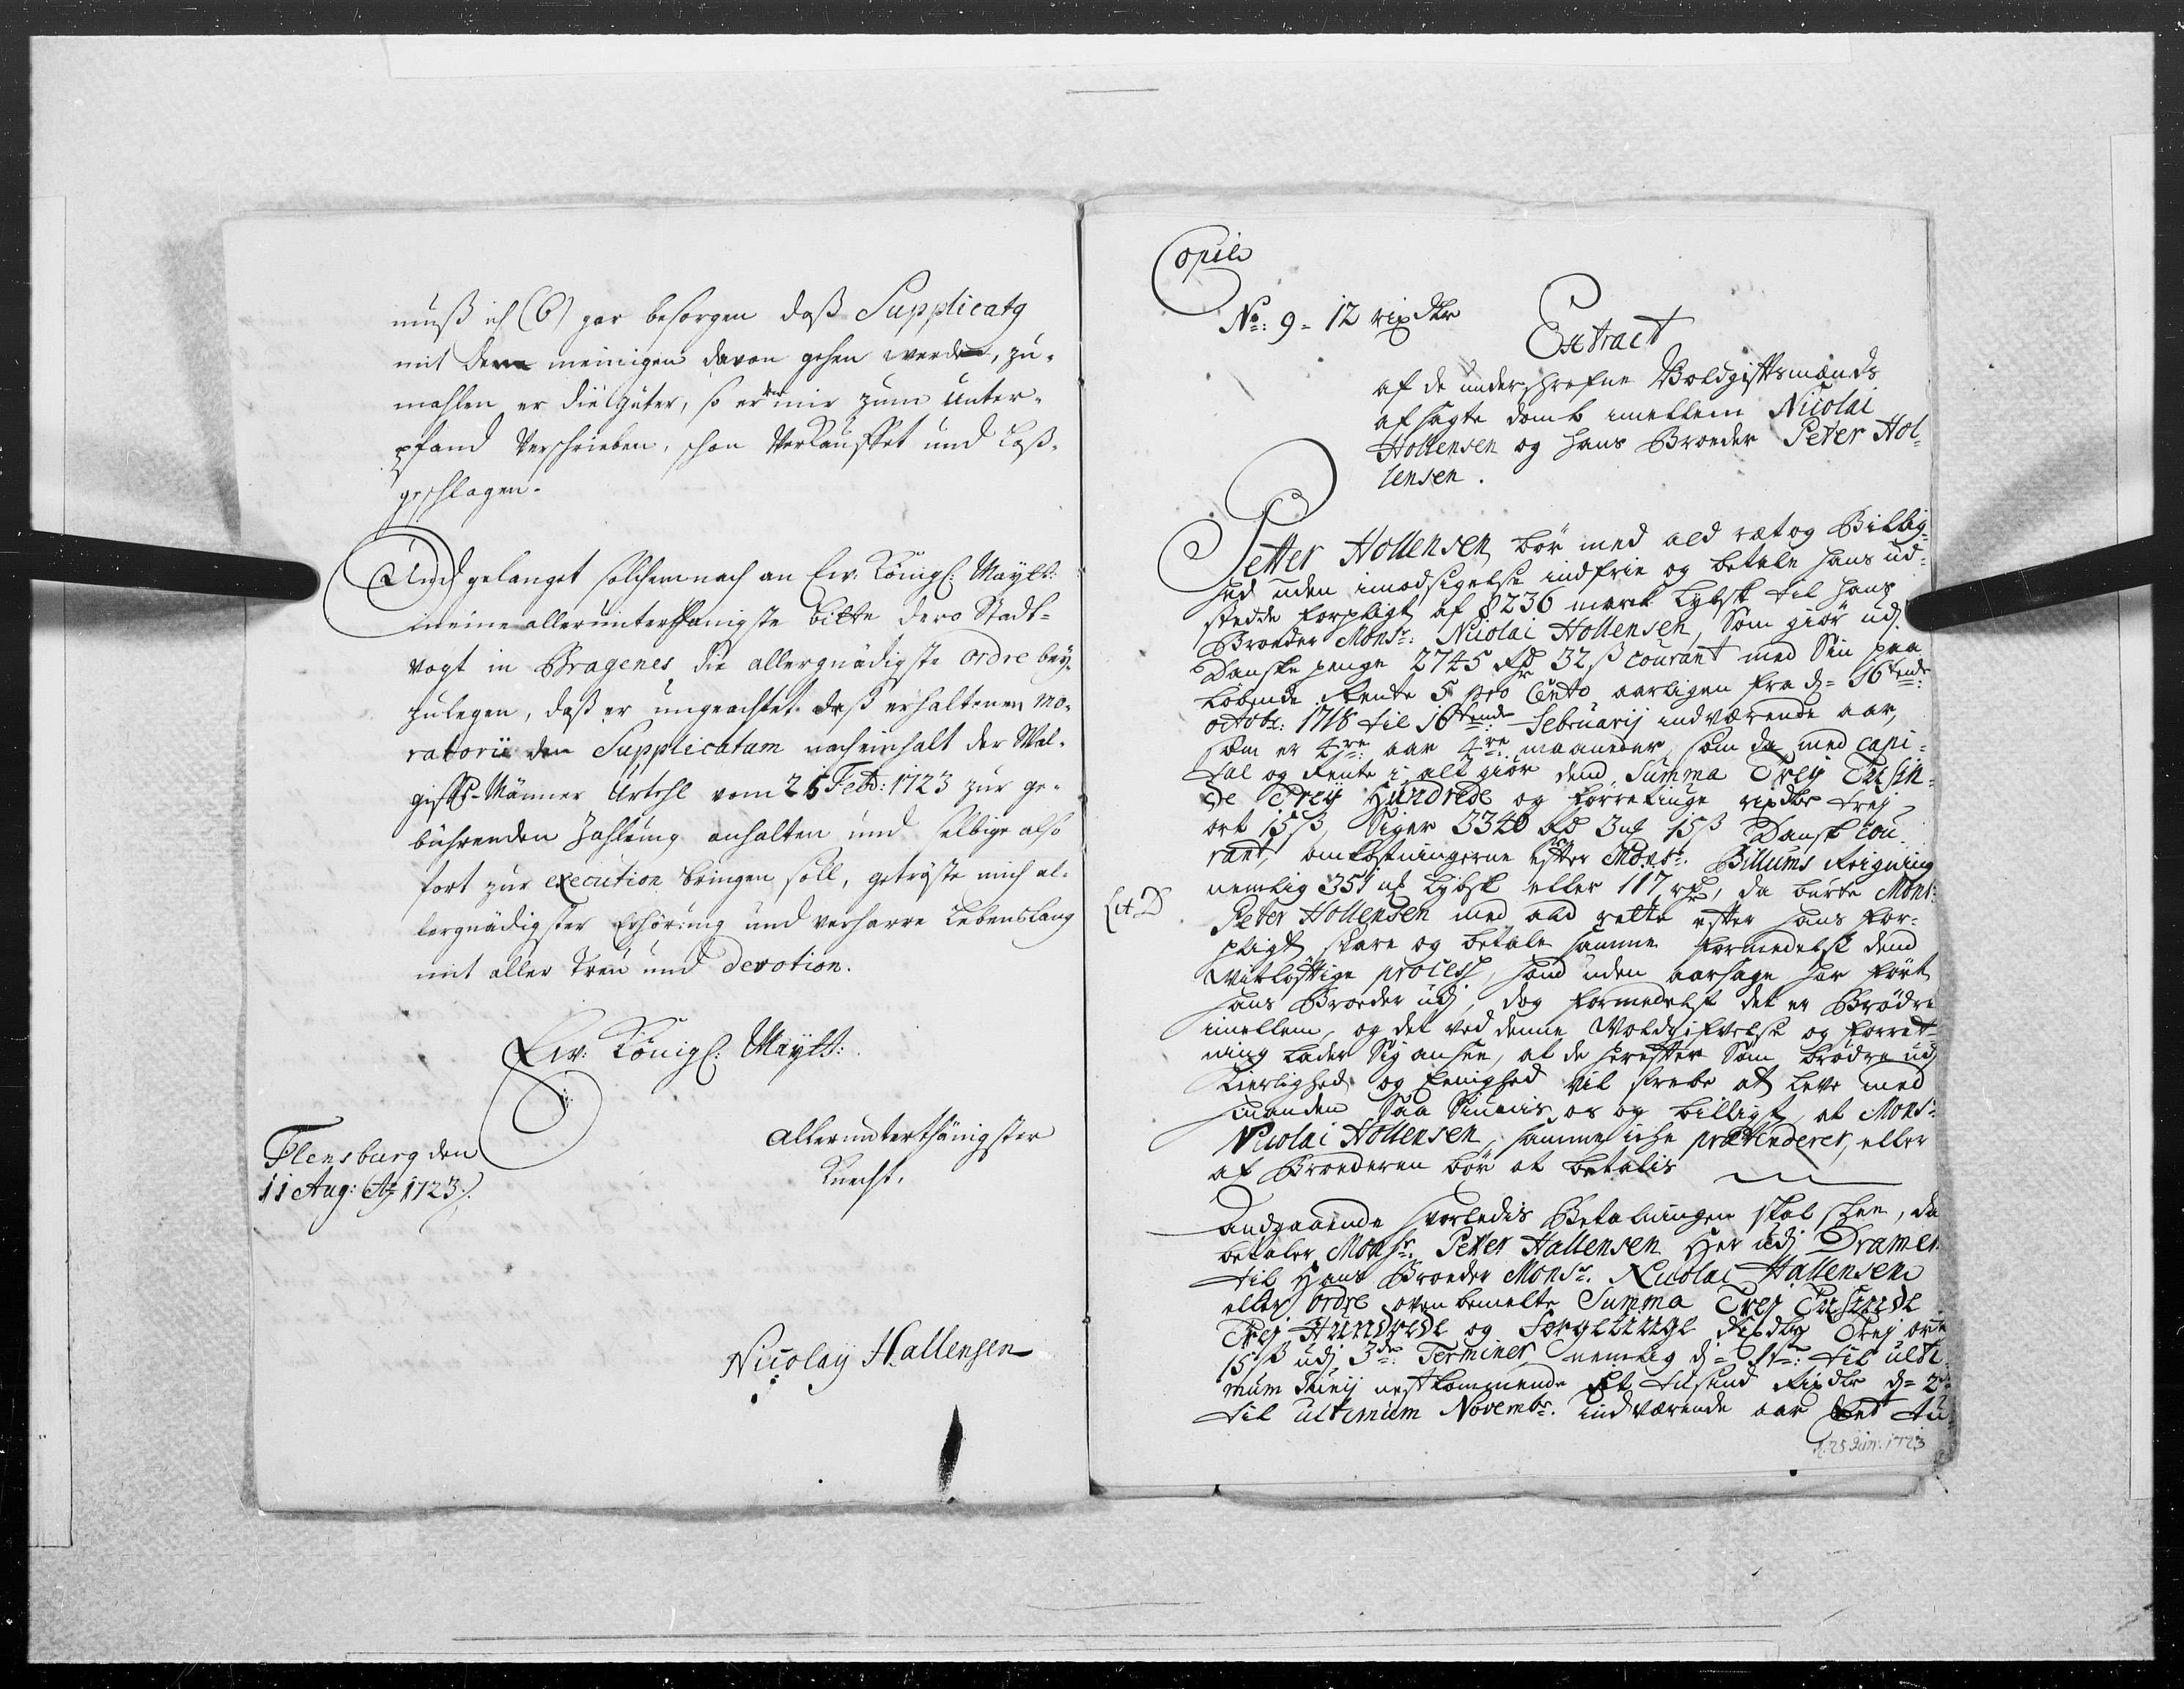 muß ich (6) gar besorgen daß Supplicatg
mit dem meinigen davon gehen werde, zu-
mahlen er die Güter, so er mir zum Unter-
pfand Verschrieben, schon Verkauffet und Loß-
geschlagen.
Und gelanget solchemnach an Ew: Königl: Maytt:
meine allerunterthänigste bitte dero Stadt-
vogt in Bragenes die allergnädigste ordre bey-
zulegen, daß er ungeachtet deß erhaltenen mo-
ratorii den Supplicatum nach einhalt der Wal-
giffts-Männer Urtehl vom 25 Febr: 1723 zur ge-
bührenden Zahlung anhalten und selbige also
fort zur execution bringen soll, getröste mich al-
lergnädigster Erhörung und verharre Lebenslang
mit aller Treu und devotion.
Ew: Königl: Maytt:
allerunterthänigster
Knecht.
Flensburg den
11 Aug: Ao 1723.
Nicolaÿ Hallensen
Copie
No: 9 = 12 rixdlr
Extract
af de underschrefne Voldgiftsmænds
afsagte domb imellem Nicolai
Hollensen og hans Broeder Peter Hol-
lensen.
Petter Hollensen bör med ald ræt og Billig-
hed uden imodsigelse indfrie og betale hans ud-
stedde forpligt af 8236 marck Lybsk til hans
Broeder Monsr: Nicolai Hollensen, Som giör udj
Danske penge 2745 Rd 32 ß courant med Sin paa
Löbende Rente 5 pro Cento aarligen fra d= 16tende:
octobr: 1718 til 16tende Februarij indværende aar,
som er 4re aar 4re maaneder, som da med Capi-
tal og Rente i alt giör dend Summa Trej Tusin-
de Trej Hundrede og förretinge rixdlr trej
ort 15 ß, Siger 3340 Rd 3 mk 15 ß Dansk cou-
rant, omkostningerne efter Monsr. Billums Reigning
nemlig 351 mk Lybsk eller 117 rd, da burte Monsr:
Lit D
Peter Hollensen med ald rette efter hans for-
pligt svare og betale samme formedelst dend
Vitløftige process, hand uden aarsage har ført
hans Broeder udj, dog formedelst det er Brødre
imellem, og det ved denne Voldgifvelse og forret-
ning lader Sig ansee, at de herefter Som brødre udj
Kierlighed og Eenighed vil strebe at leve med
hinanden Saa Siunis os og billigt, at Monsr:
Nicolai Hollensen, samme iche prætenderer, eller
af Broederen bör at betalis
Andgaaende hvorledis Betalningen skal skee, da
betaler Monsr: Peter Hallensen her udj Dramen
til Hans Broeder Monsr. Nicolai Hallensen
eller ordre oven bemelte Summa Trej Tusinde
Trej Hundrede og Forgetiuge Rixdlr Trej ort
15 ß udj 3de Terminer nemlig d= 1te: til ulti-
mum Junij nestkommende Et tusend Rixdlr d= 2de
til ultimum Novembr. indværende aar Eet tu-
d. 25 Jun: 1723